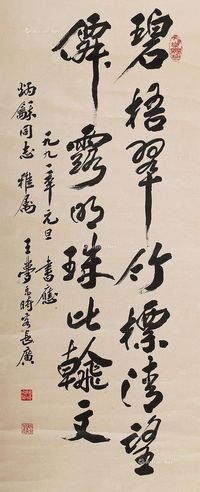 碧梧翠竹標清望
僊露明珠比翰文
一九九二年元旦 書應
炳龢同志雅属
王夢
時客長廣